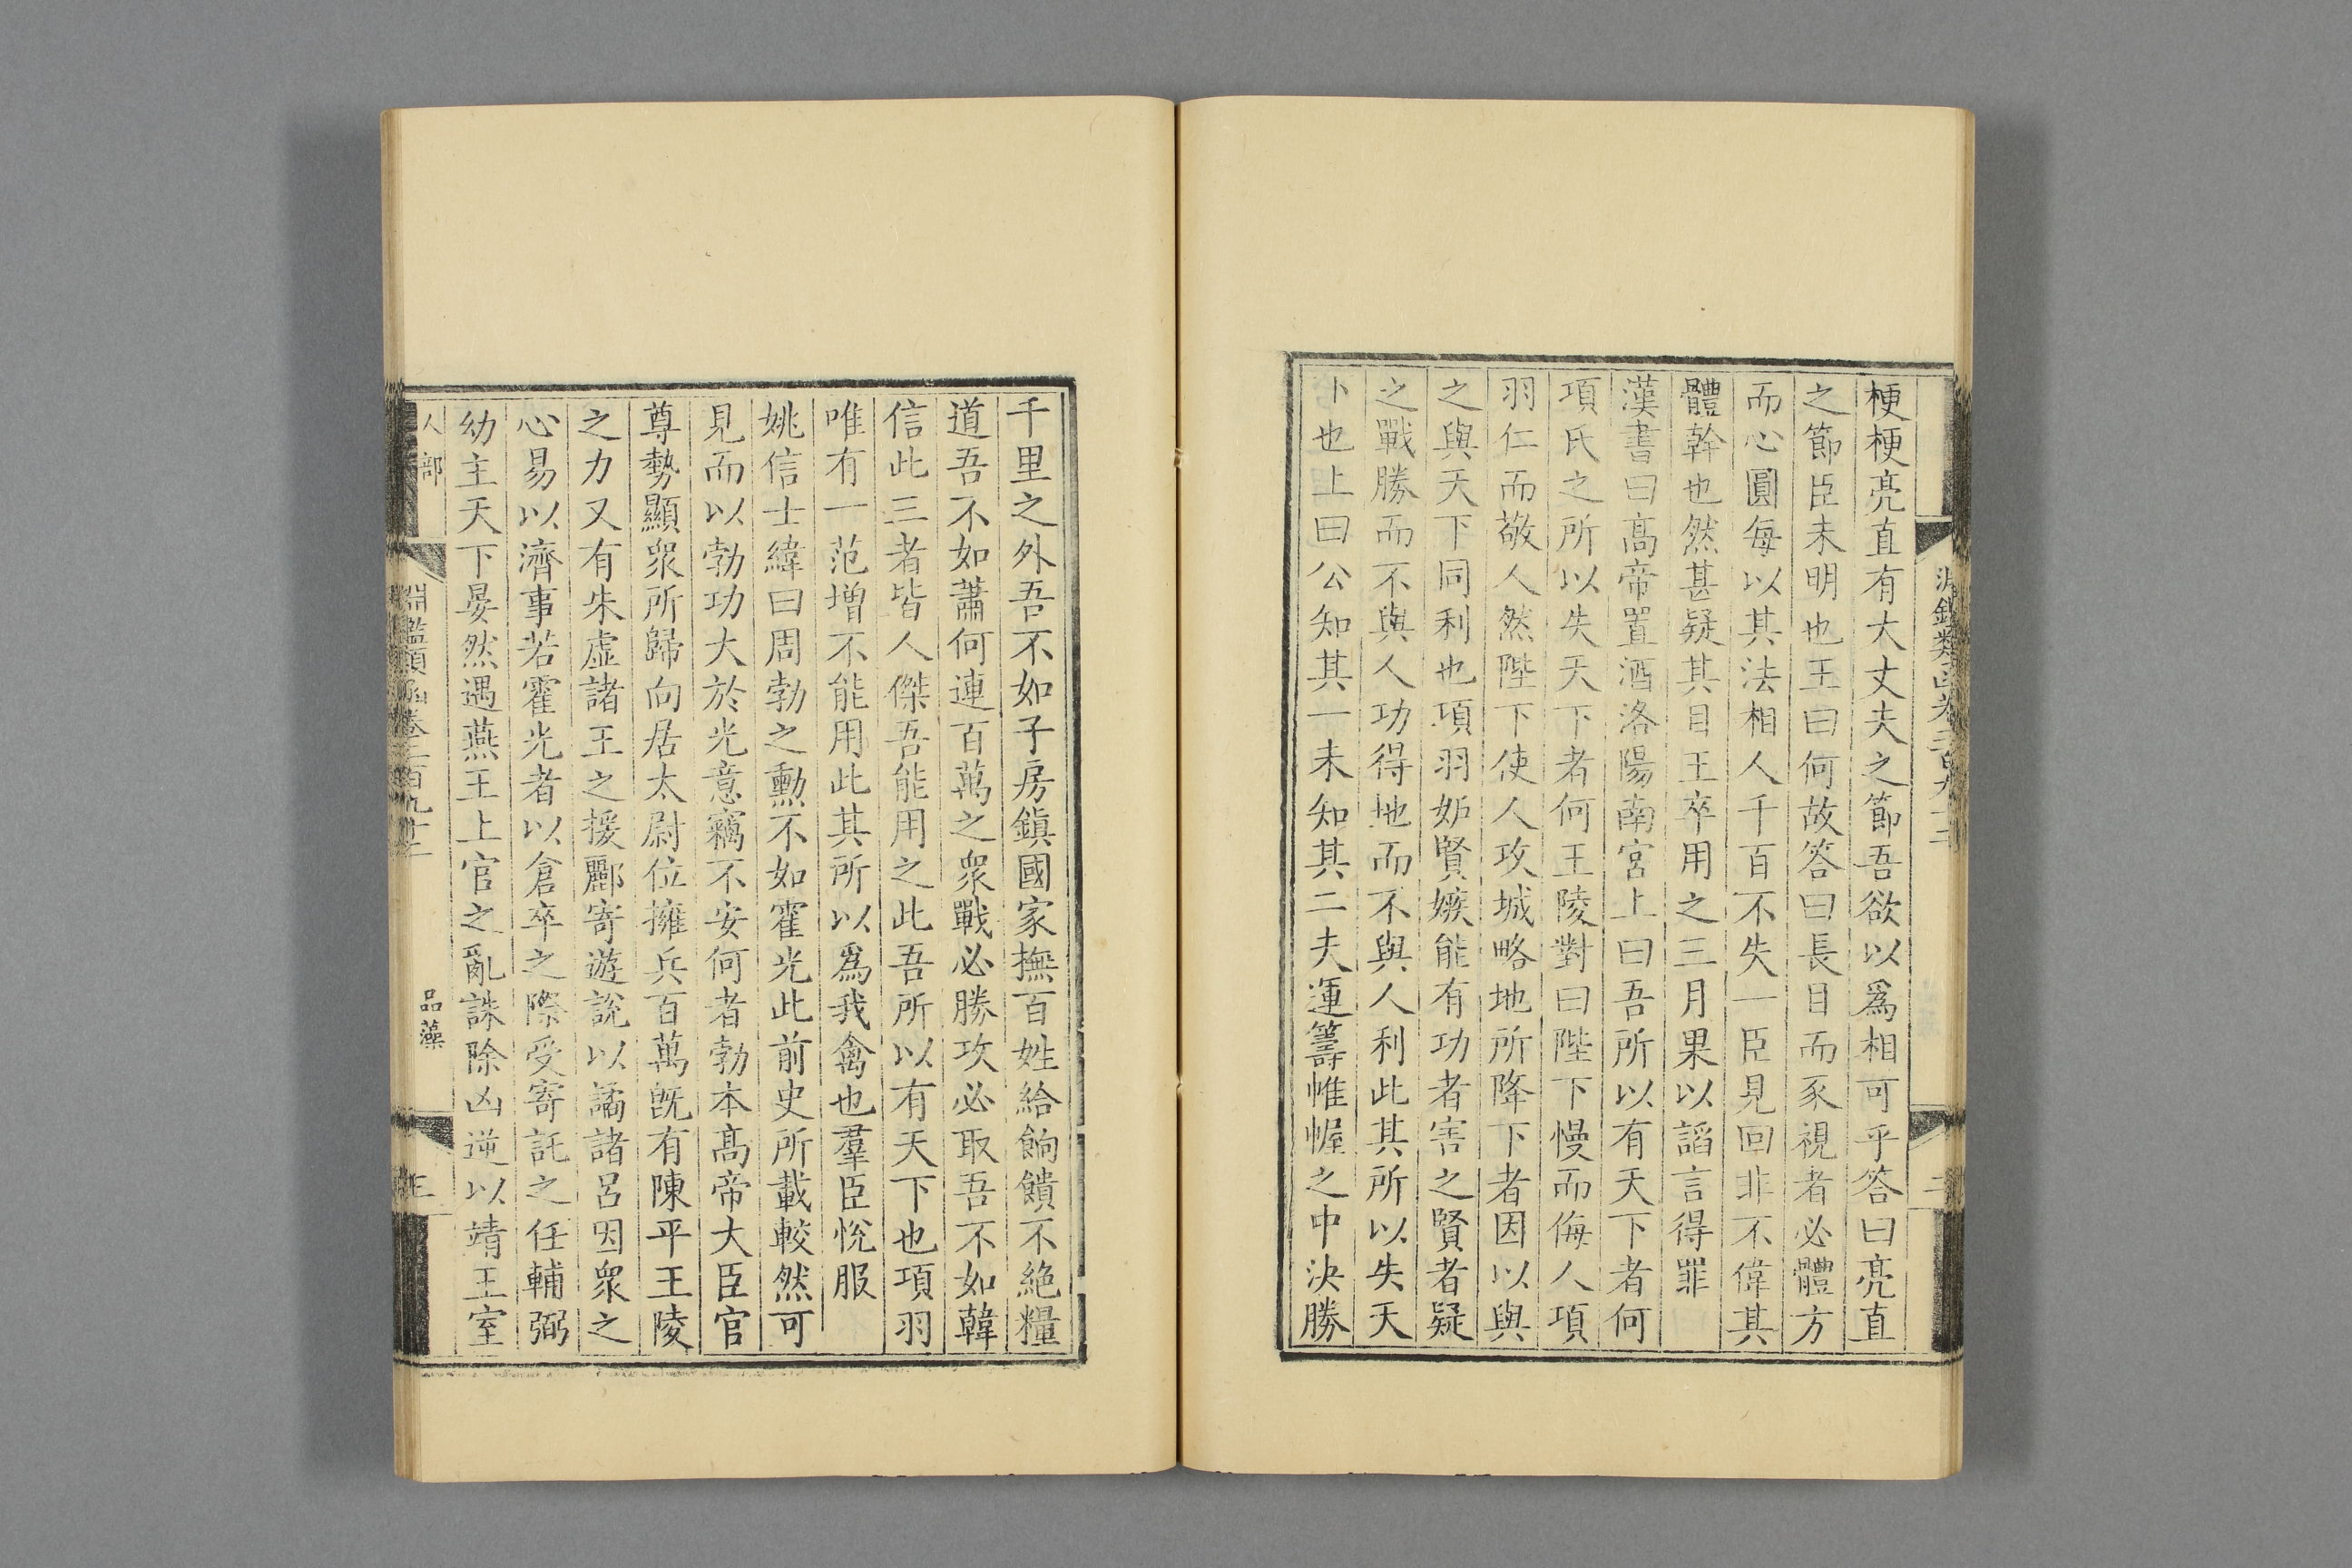 梗梗亮直有大丈夫之節吾欲以爲相可乎答曰亮直
之節臣未明也王曰何故答曰長目而豕視者必體方
而心圓每以其法相人千百不失一臣見回非不偉其
體幹也然甚疑其目王卒用之三月果以諂言得罪
漢書曰高帝置酒洛陽南宮上曰吾所以有天下者何
項氏之所以失天下者何王陵對曰陛下慢而侮人項
羽仁而敬人然陛下使人攻城略地所降下者因以與
之與天下同利也項羽妒賢嫉能有功者害之賢者疑
之戰勝而不與人功得地而不與人利此其所以失天
卜也上曰公知其一未知其二夫運籌帷幄之中決勝
千里之外吾不如子房鎮國家撫百姓給餉饋不絕糧
道吾不如蕭何連百萬之衆戰必勝攻必取吾不如韓
信此三者皆人傑吾能用之此吾所以有天下也項羽
唯有一范增不能用此其所以爲我禽也羣臣悅服
姚信士緯曰周勃之勳不如霍光此前史所載較然可
見而以勃功大於光意竊不安何者勃本高帝大臣官
尊勢顯衆所歸向居太尉位擁兵百萬既有陳平王陵
之力又有朱虛諸王之援酈寄遊說以譎諸呂因衆之
心易以濟事若霍光者以倉卒之際受寄託之任輔弼
幼主天下晏然遇燕王上官之亂誅除凶逆以靖王室
人部
淵鑑類函卷二百九十二
品藻
三